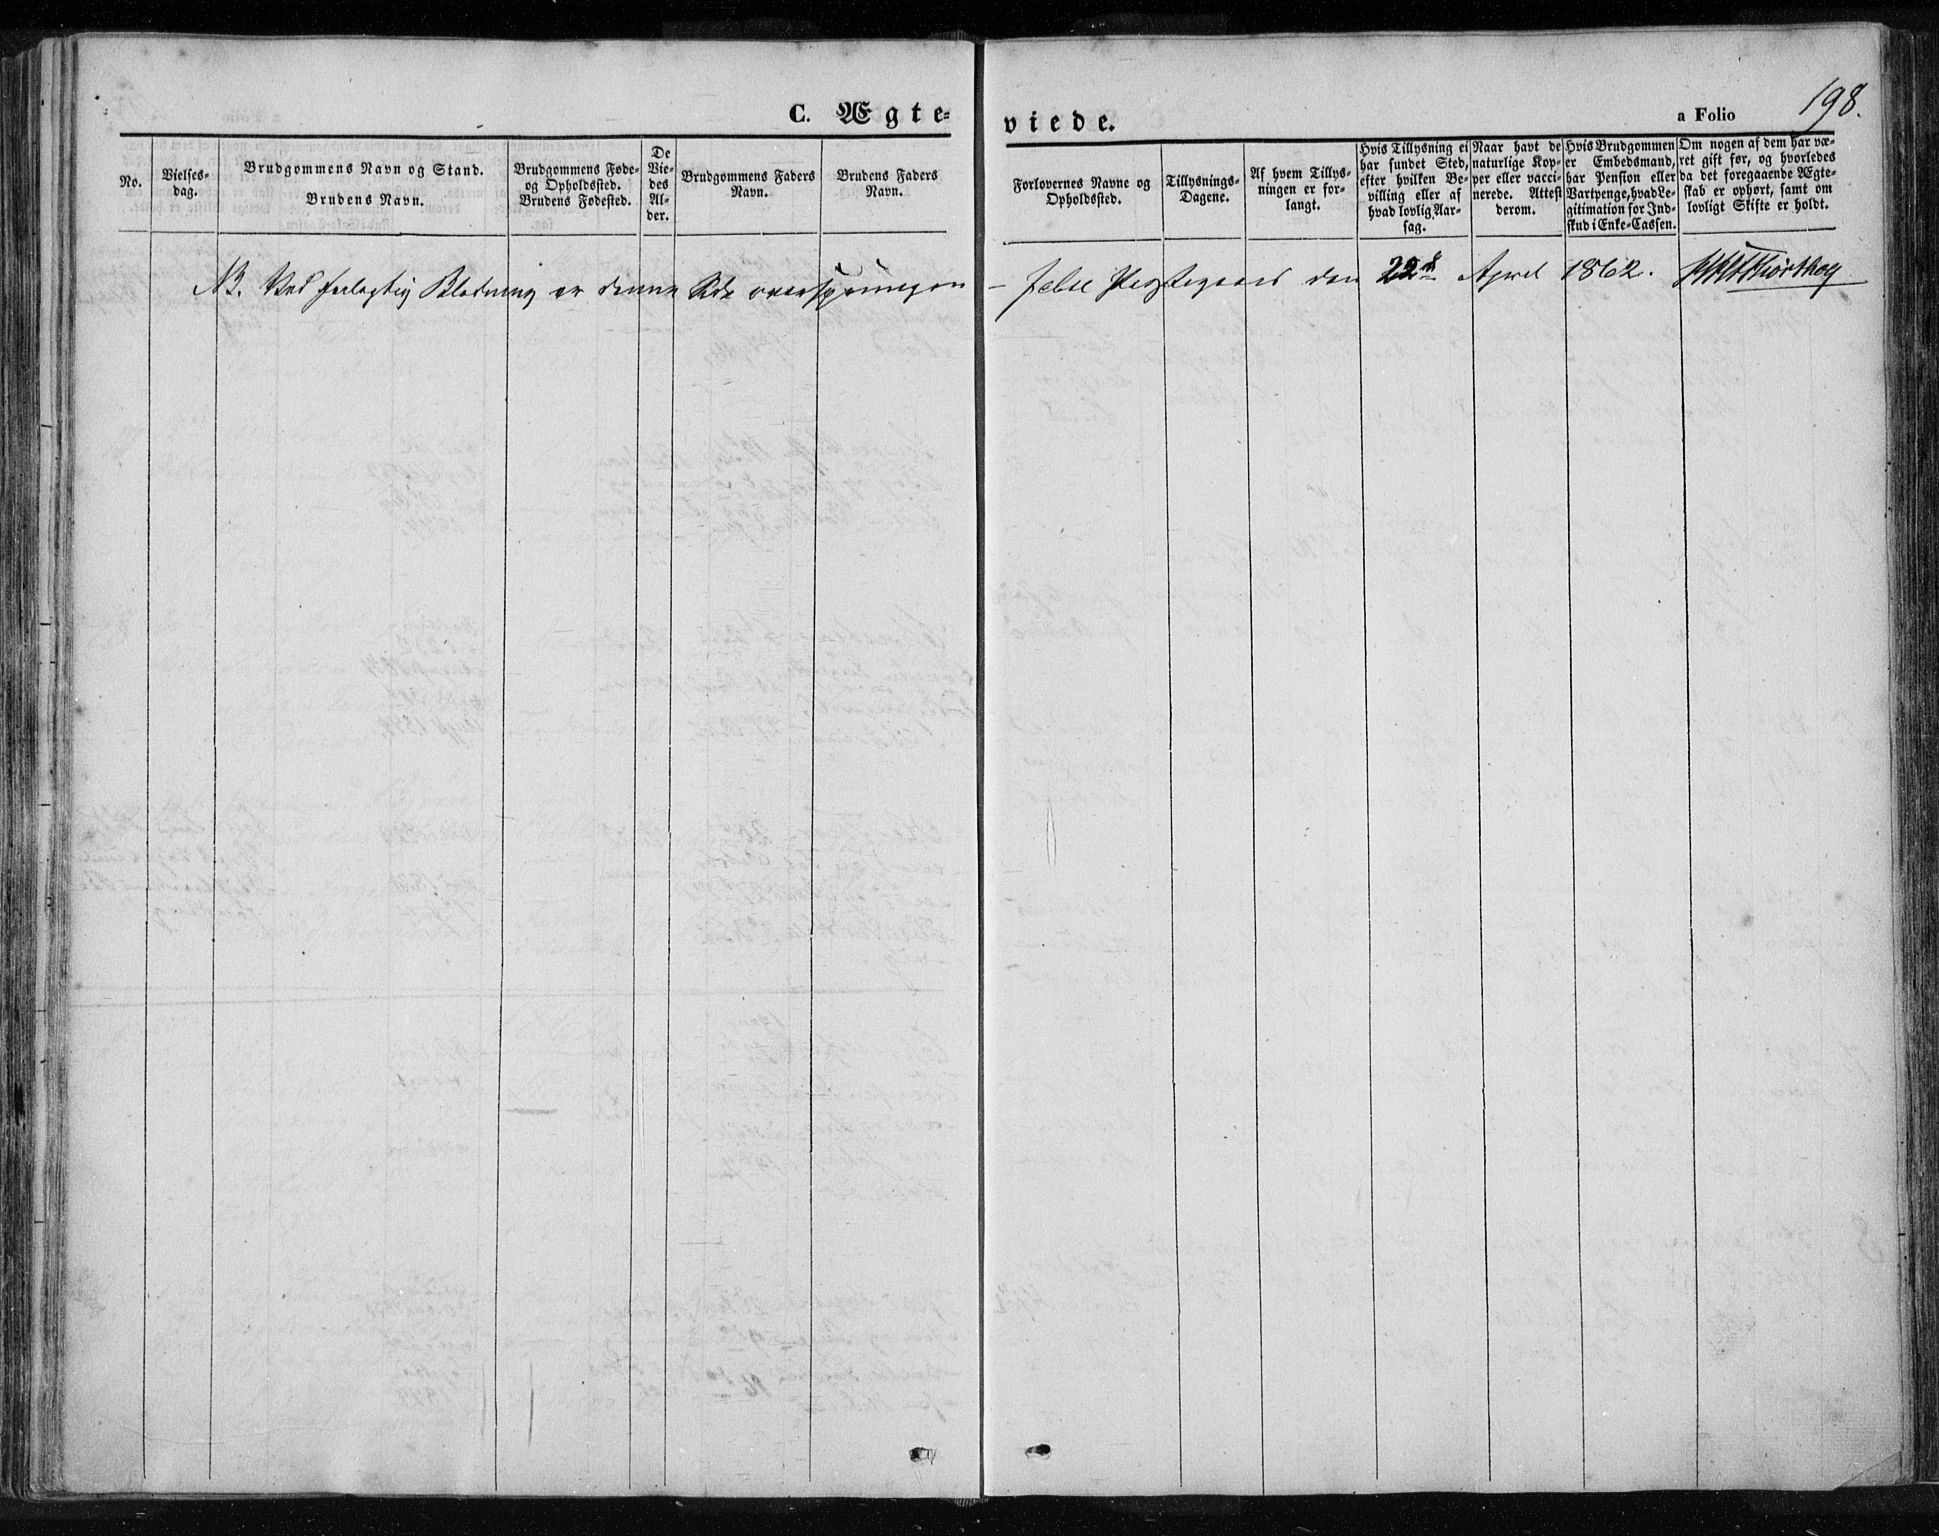 C. Ægte-
viede.
a Folio
198.
No.
Vielses-
dag.
Brudgommens Navn og Stand.
Brudens Navn.
Brudgommens Føde-
og Opholdssted.
Brudens Fødested.
De
Vie-
des
Al-
der.
Brudgommens Faders
Navn.
Brudens Faders
Navn.
Forlovernes Navne og
Opholdssted.
Tillysnings-
Dagene.
Af hvem Tillys-
ningen er for-
langt.
Hvis Tillysning ei
har fundet Sted,
efter hvilken Be-
villing eller af
hvad lovlig Aar-
sag.
Naar havt de
naturlige Kop-
per eller vacci-
nerede. Attest
derom.
Hvis Brudgommen
er Embedsmand,
har Pension eller
Vartpenge, hvad Le-
gitimation for Ind-
skud i Enke-Cassen.
Om nogen af dem har væ-
ret gift før, og hvorledes
da det foregaaende Ægte-
skab er ophørt, samt om
lovligt Skifte er holdt.
NB. Ved feilagtig Bladning er denne Side oversprungen - Præstegaard den 22de April 1862.